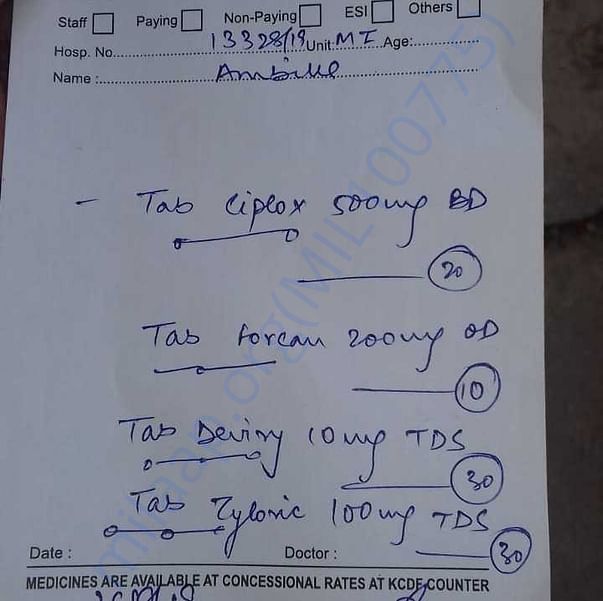 Staff Paying Non-Paying ESI Others
Hosp. No. 13328/19 Unit: M I Age:
Name :
- Tab Ciplox 500mg BD
20
Tab Forcan 200mg OD
10
Tab Deviry 10mg TDS
30
Tab Zyloric 100mg TDS
30
Date : Doctor :
MEDICINES ARE AVAILABLE AT CONCESSIONAL RATES AT KCDF COUNTER
milaap.org(MIL1007775)